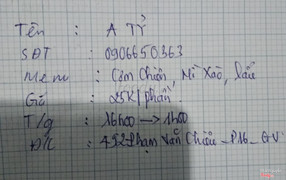 Tên : A TỶ
SĐT : 0906650363
Menu : Cơm Chiên, Mì Xào, lẩu
Giá : 25K/phần
T/g : 16h00 → 1h00
Đ/c : 452 Phạm Văn Chiêu - P16 - GV